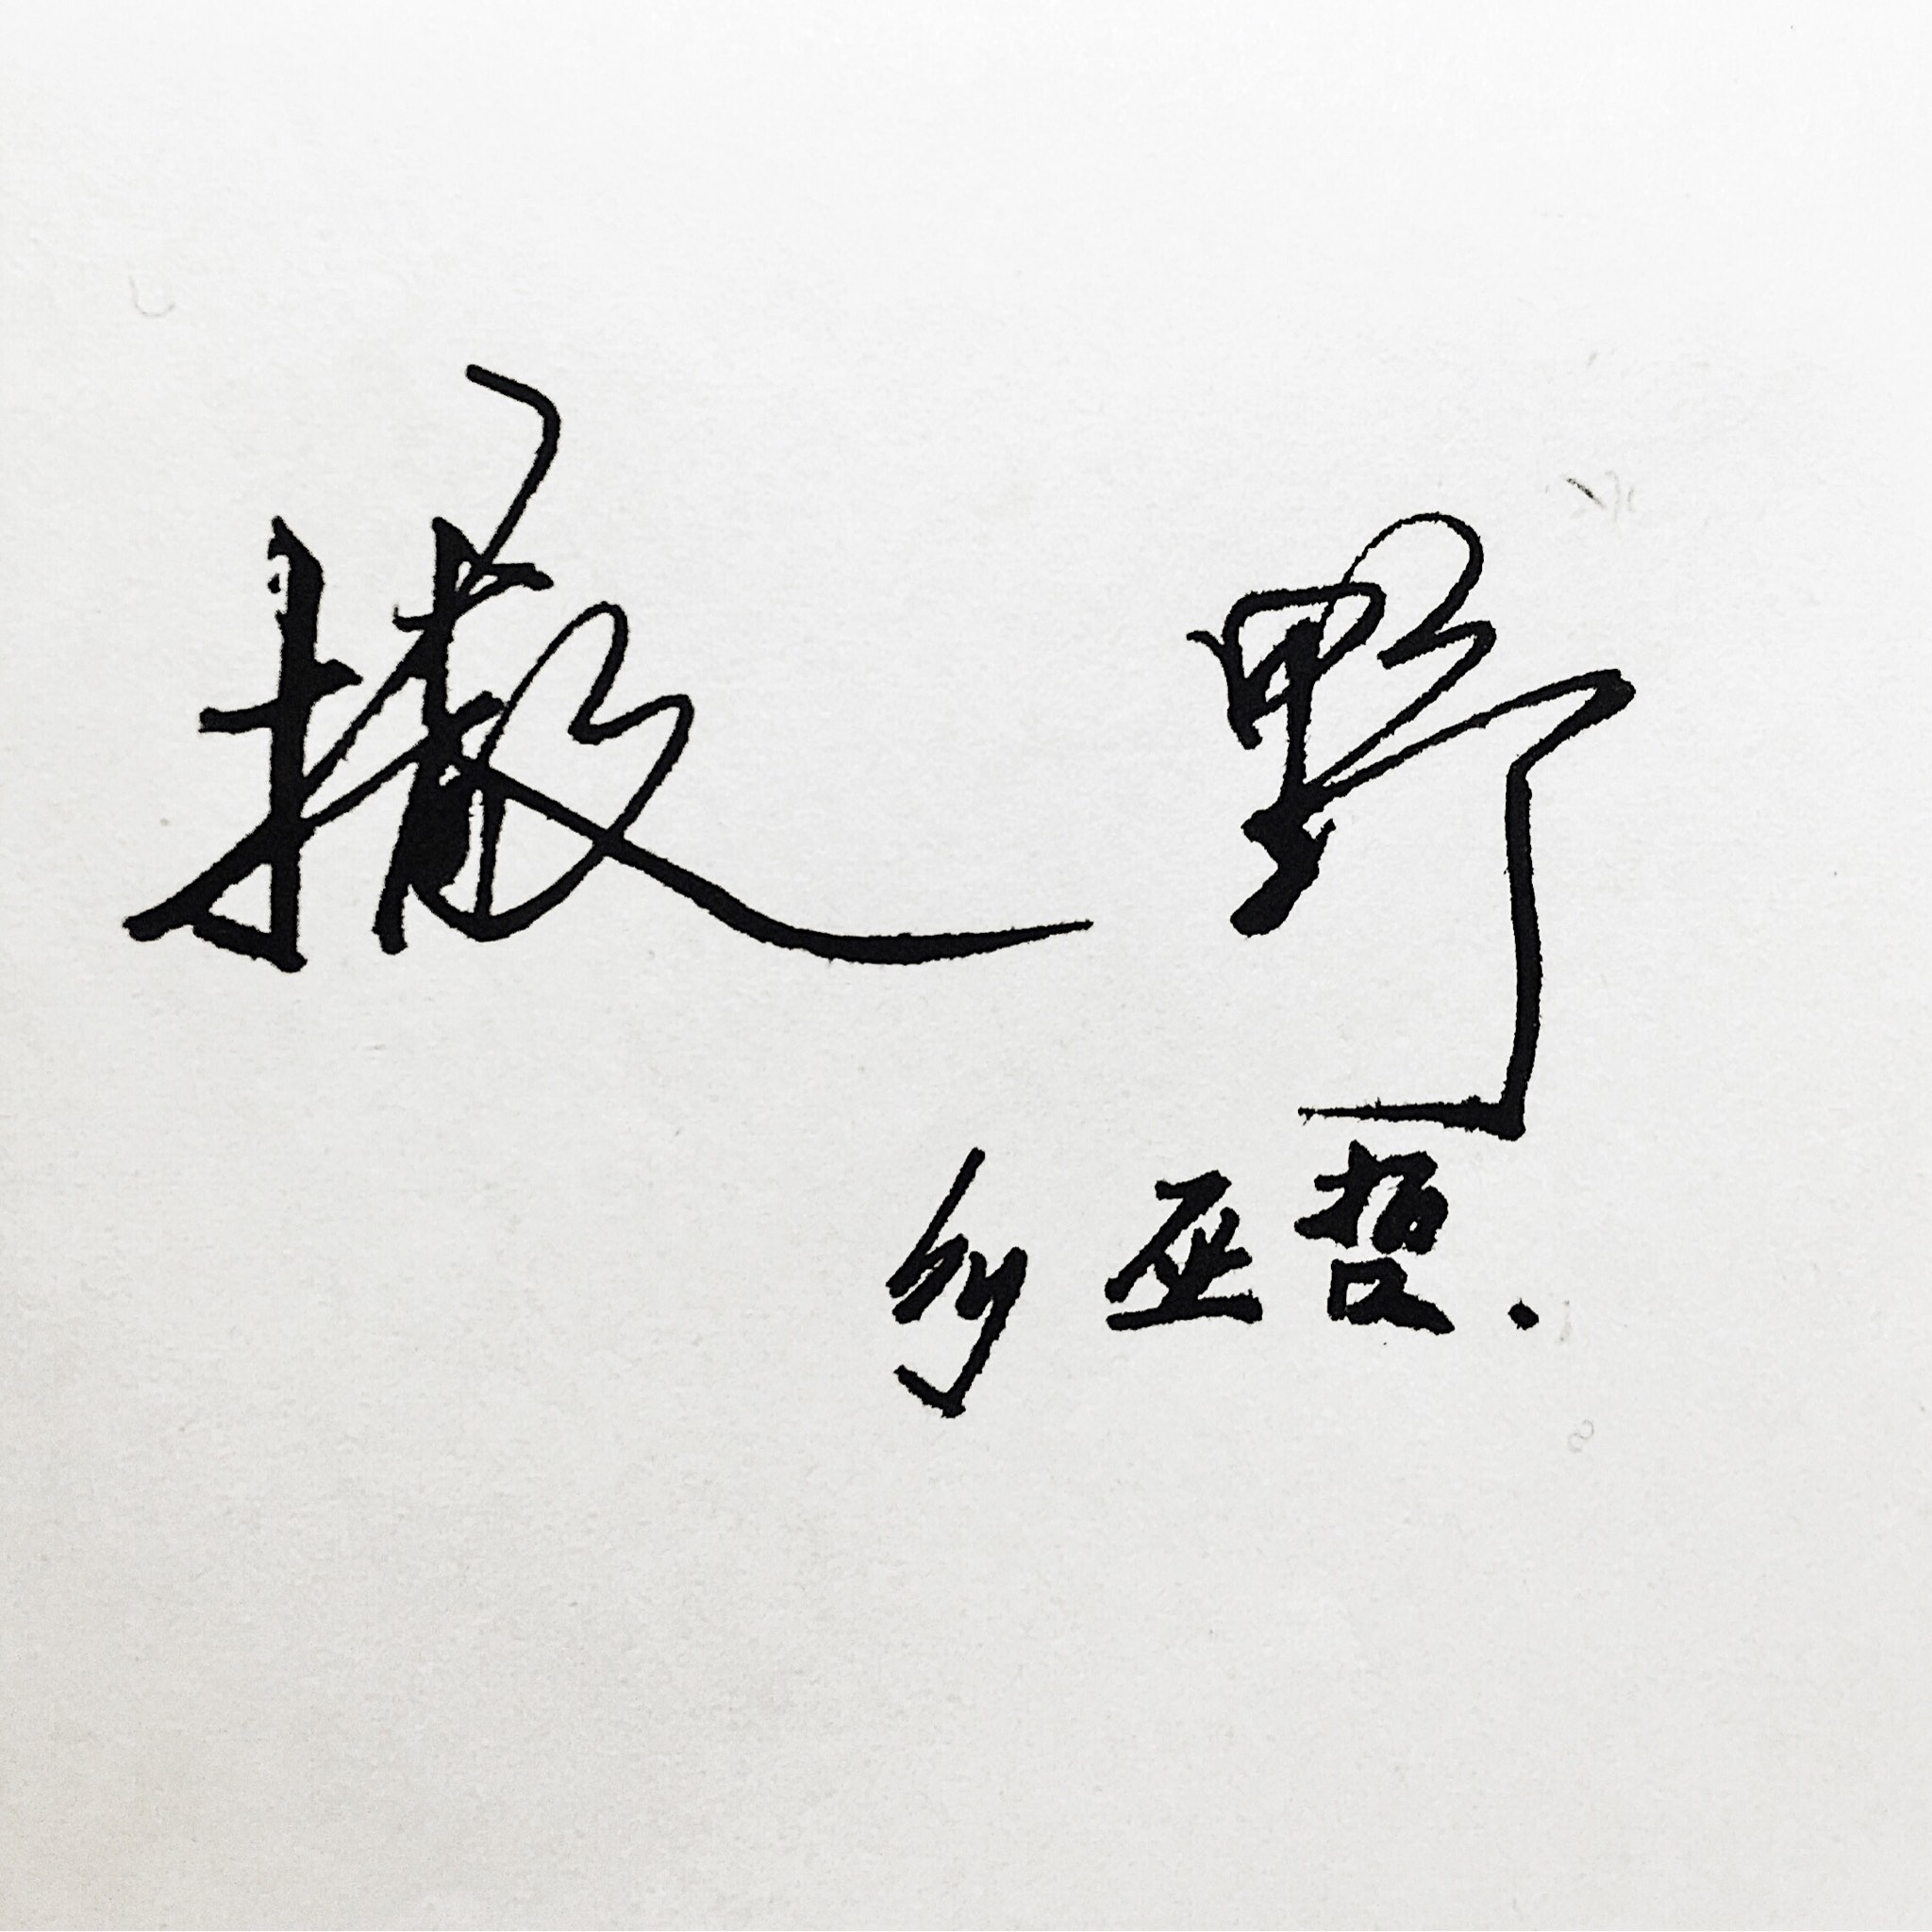 撒野
巫哲.